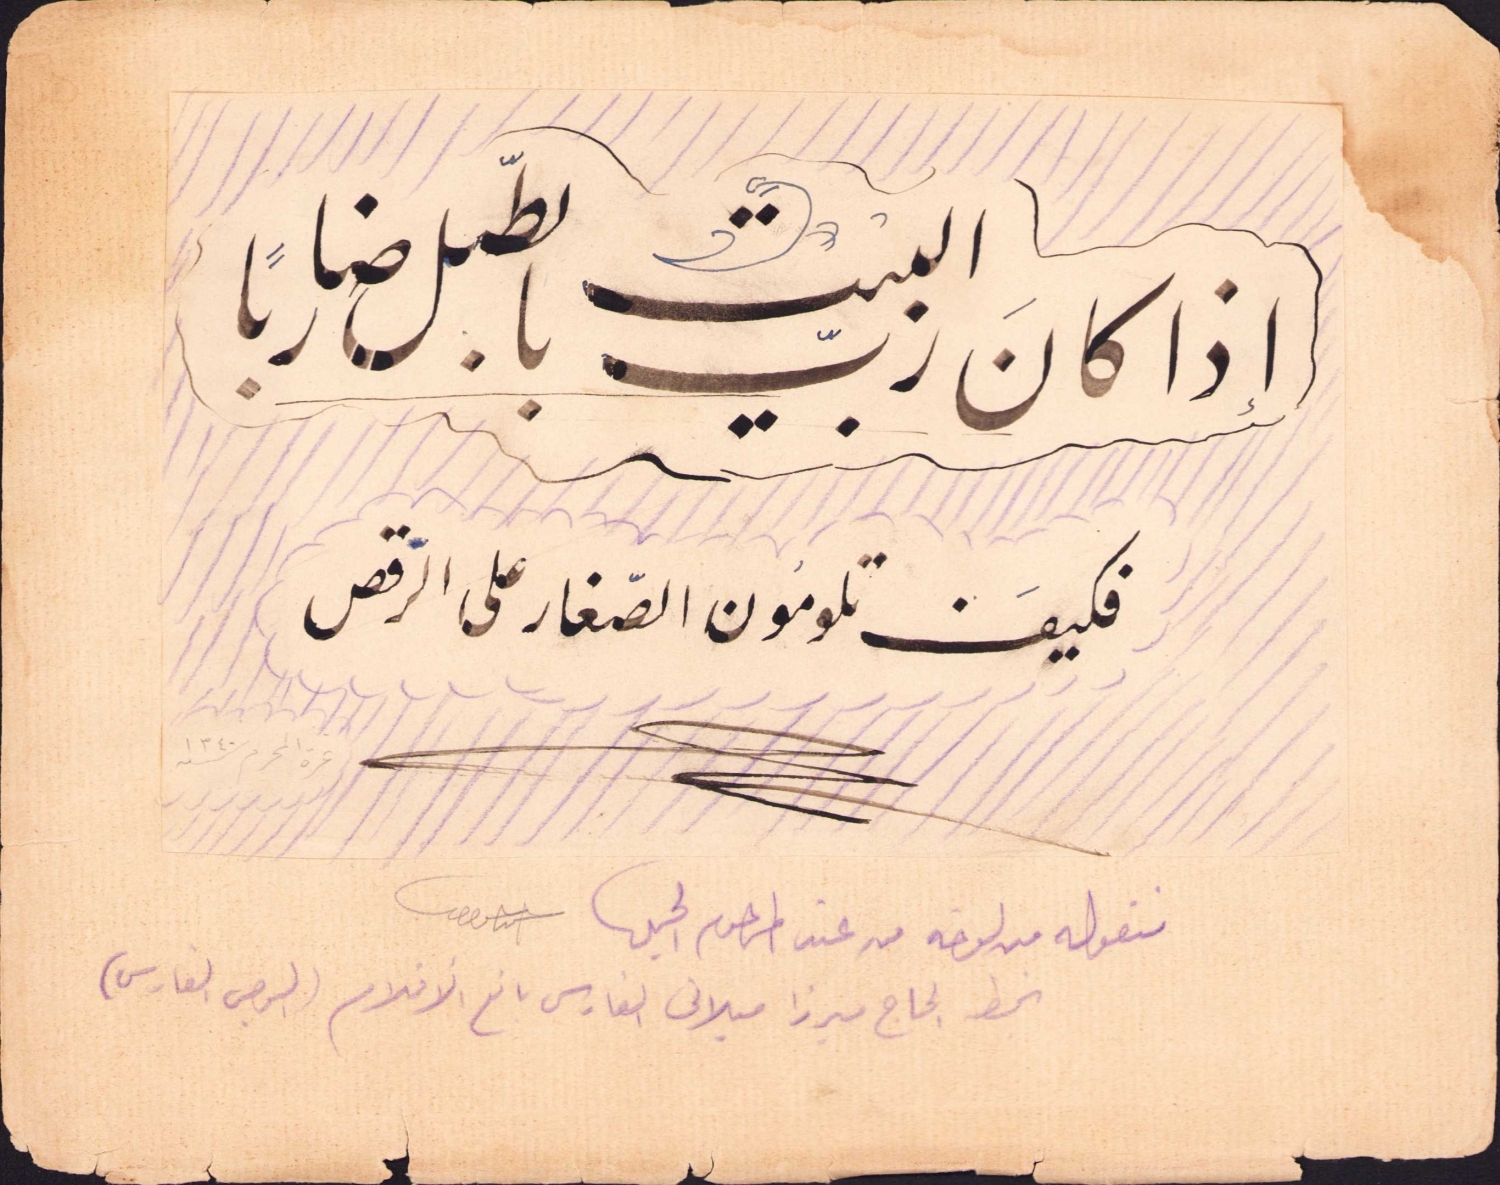 إذا كانَ ربّ البيت بالطّبل ضاربًا
فكيفَ تلومُون الصّغار على الرّقص
غرة المحرم سنة ١٣٤٠
منقوله من لوحة من عند المرحوم
بخط الحاج ميرزا ميلاني الفارسي بائع الأقلام (البوص الفارسي)